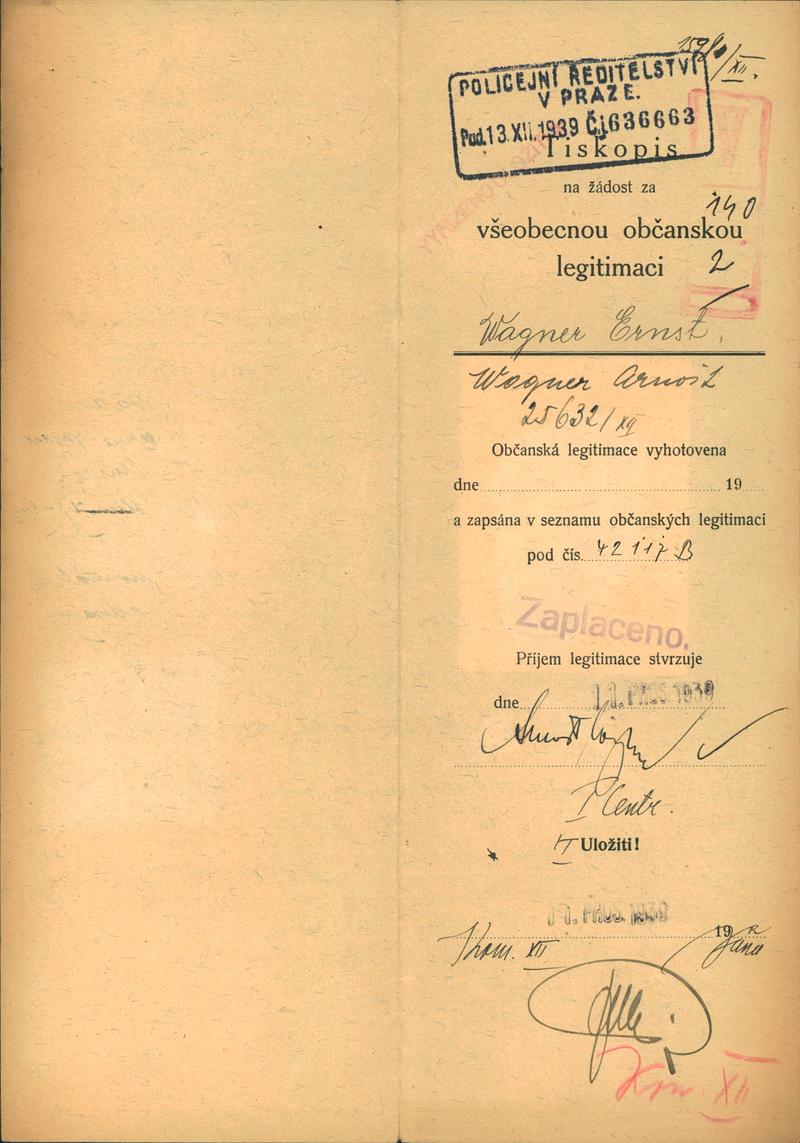 POLICEJNÍ ŘEDITELSTVÍ
V PRAZE.
Pod. 13.XII.1939 Čj. 636663
Tiskopis
na žádost za
140
všeobecnou občanskou
legitimaci 2
Wagner Ernst,
Wagner Arnošt
25632/XII
Občanská legitimace vyhotovena
dne 19
a zapsána v seznamu občanských legitimací
pod čís. 42117 B
Zaplaceno.
Příjem legitimace stvrzuje
dne 11. PROS. 1939
Arnošt Wagner
I Centr.
Uložiti!
11. PROS. 1939
19
Kom. XII
Kom. XII